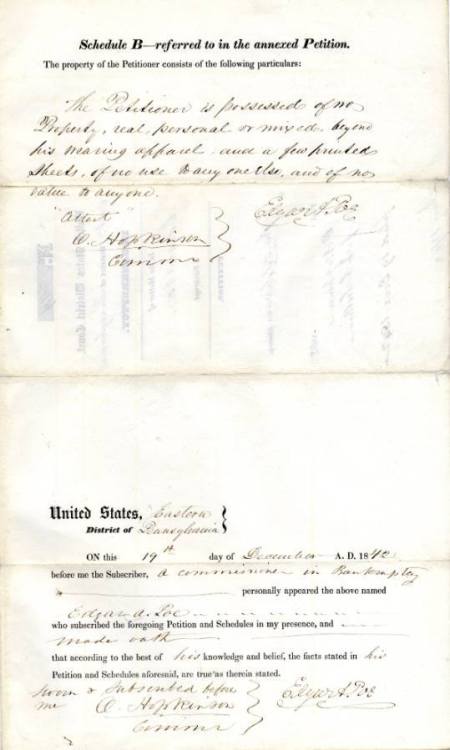 Schedule B—referred to in the annexed Petition.
The property of the Petitioner consists of the following particulars:
The Petitioner is possessed of no
Property, real, personal or mixed, beyond
his wearing apparel and a few printed
sheets, of no use to any one else, and of no
value to anyone.
"Attest" Edgar A. Poe
O. Hopkinson
Commr
United States, Eastern
District of Pennsylvania
ON this 19th day of December A. D. 1842
before me the Subscriber, a commissioner in Bankruptcy
personally appeared the above named
Edgar A. Poe
who subscribed the foregoing Petition and Schedules in my presence, and
made oath
that according to the best of his knowledge and belief, the facts stated in his
Petition and Schedules aforesaid, are true as therein stated.
Sworn & Subscribed before
me O. Hopkinson Edgar A. Poe
Commr